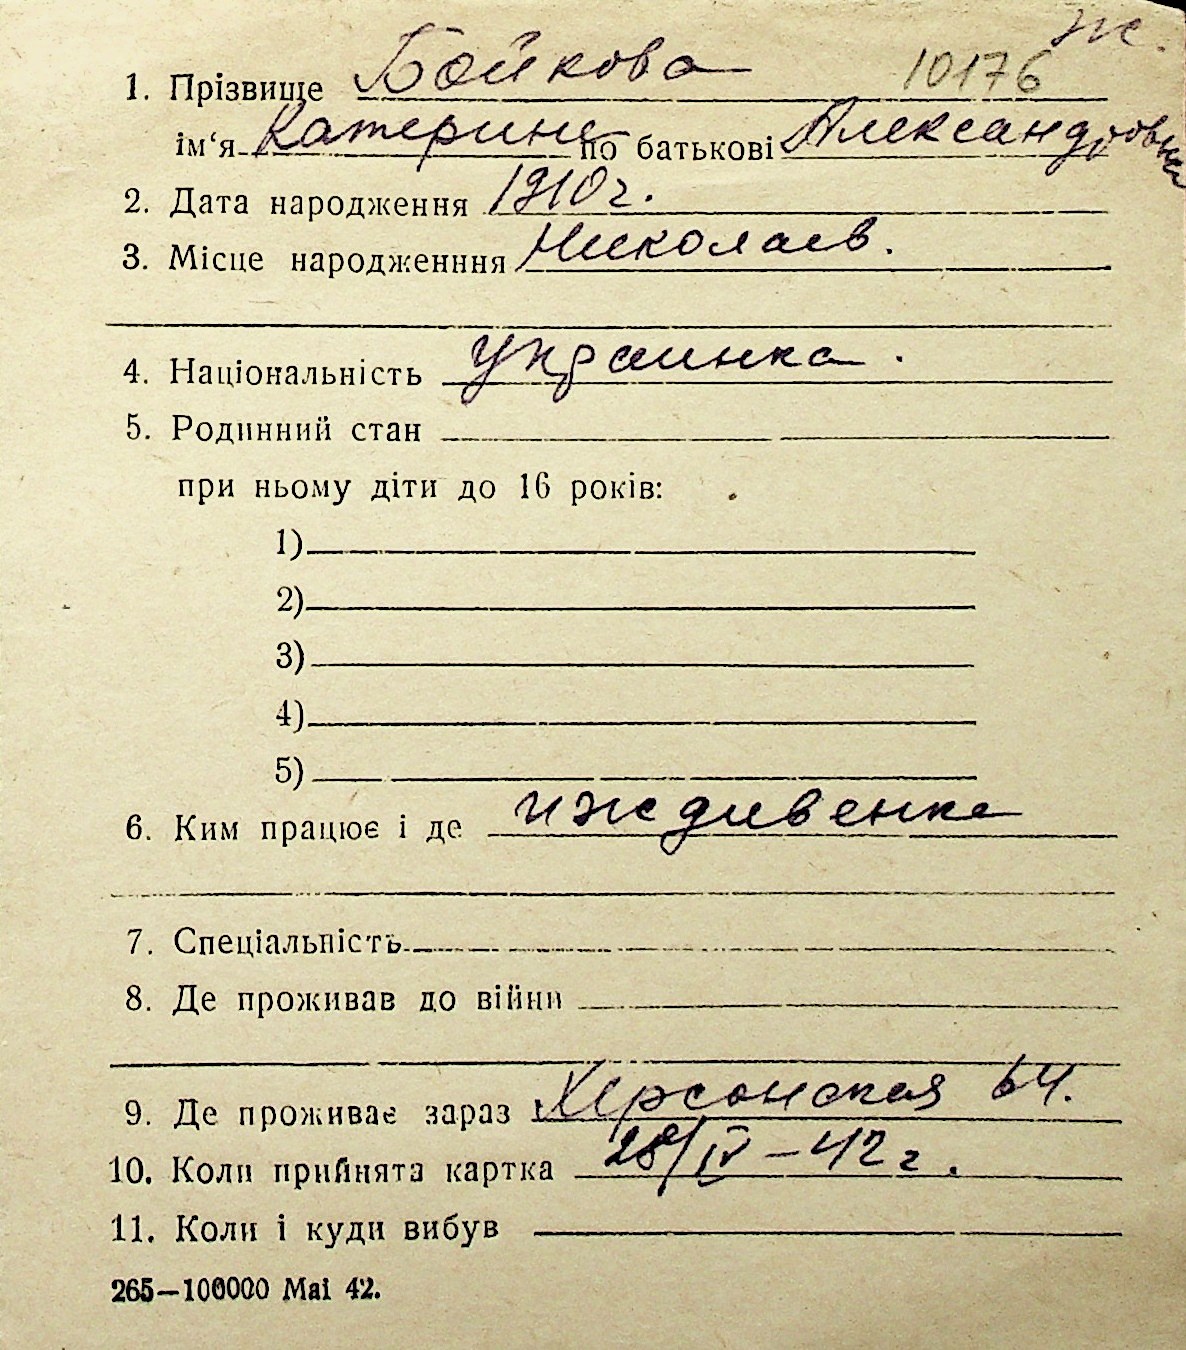 ж.
1. Прізвище Бойкова 10176
ім‘я Катерина по батькові Александровна
2. Дата народження 1910 г.
3. Місце народженння Николаев.
4. Національність Украинка.
5. Родинний стан
при ньому діти до 16 років:
1)
2)
3)
4)
5)
6. Ким працює і де иждивенка
7. Спеціальність
8. Де проживав до війни
9. Де проживає зараз Херсонская 64.
10. Коли прийнята картка 28/IV-42 г.
11. Коли і куди вибув
265—100000 Mai 42.